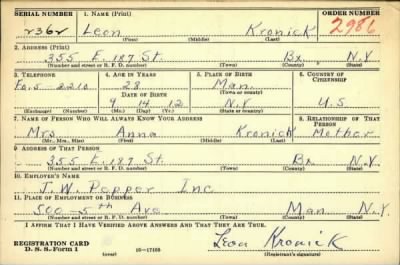 SERIAL NUMBER 1. NAME (Print) ORDER NUMBER
2362 Leon Kronick 2986
(First) (Middle) (Last)
2. ADDRESS (Print)
355 E. 187 St. Bx. N.Y
(Number and street or R. F. D. number) (Town) (County) (State)
3. TELEPHONE 4. AGE IN YEARS 5. PLACE OF BIRTH 6. COUNTRY OF CITIZENSHIP
28 Man.
(Town or county)
DATE OF BIRTH
Fo. 5- 2210 9 14 12 N.Y U.S
(Exchange) (Number) (Mo.) (Day) (Yr.) (State or country)
7. NAME OF PERSON WHO WILL ALWAYS KNOW YOUR ADDRESS 8. RELATIONSHIP OF THAT PERSON
Mrs Anna Kronick Mother
(Mr., Mrs., Miss) (First) (Middle) (Last)
9. ADDRESS OF THAT PERSON
355 E. 187 St. Bx N.Y.
(Number and street or R. F. D. number) (Town) (County) (State)
10. EMPLOYER'S NAME
J. W. Pepper Inc
11. PLACE OF EMPLOYMENT OR BUSINESS
500 - 5th Ave Man N.Y.
(Number and street or R. F. D. number) (Town) (County) (State)
I AFFIRM THAT I HAVE VERIFIED ABOVE ANSWERS AND THAT THEY ARE TRUE.
REGISTRATION CARD
D. S. S. Form 1 (over) Leon Kronick
(Registrant's signature)